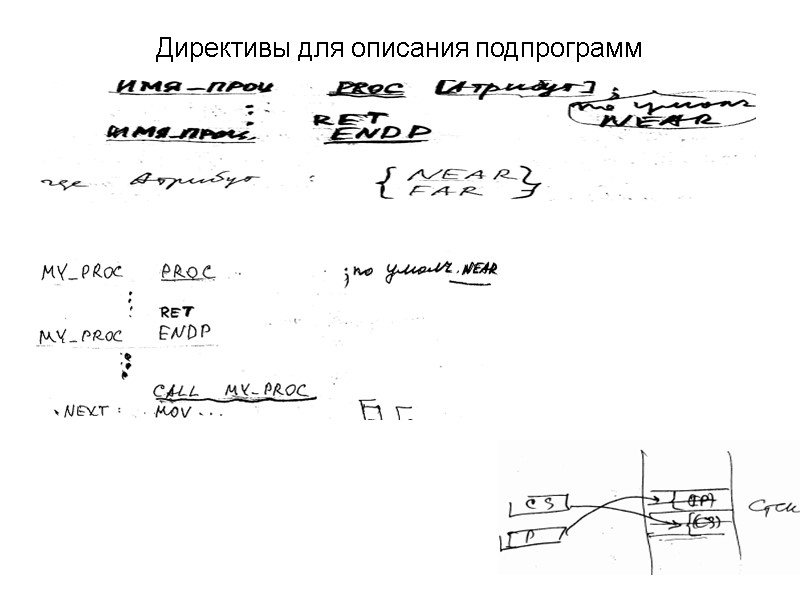 Директивы для описания подпрограмм
ИМЯ_ПРОЦ PROC [Атрибут] ; по умолч NEAR
⋮
RET
ИМЯ_ПРОЦ ENDP
где Атрибут : { NEAR }
{ FAR }
MY_PROC PROC ; по умолч. NEAR
⋮
RET
MY_PROC ENDP
⋮
CALL MY_PROC
NEXT : MOV ...
CS {IP}
P {CS}
Стек